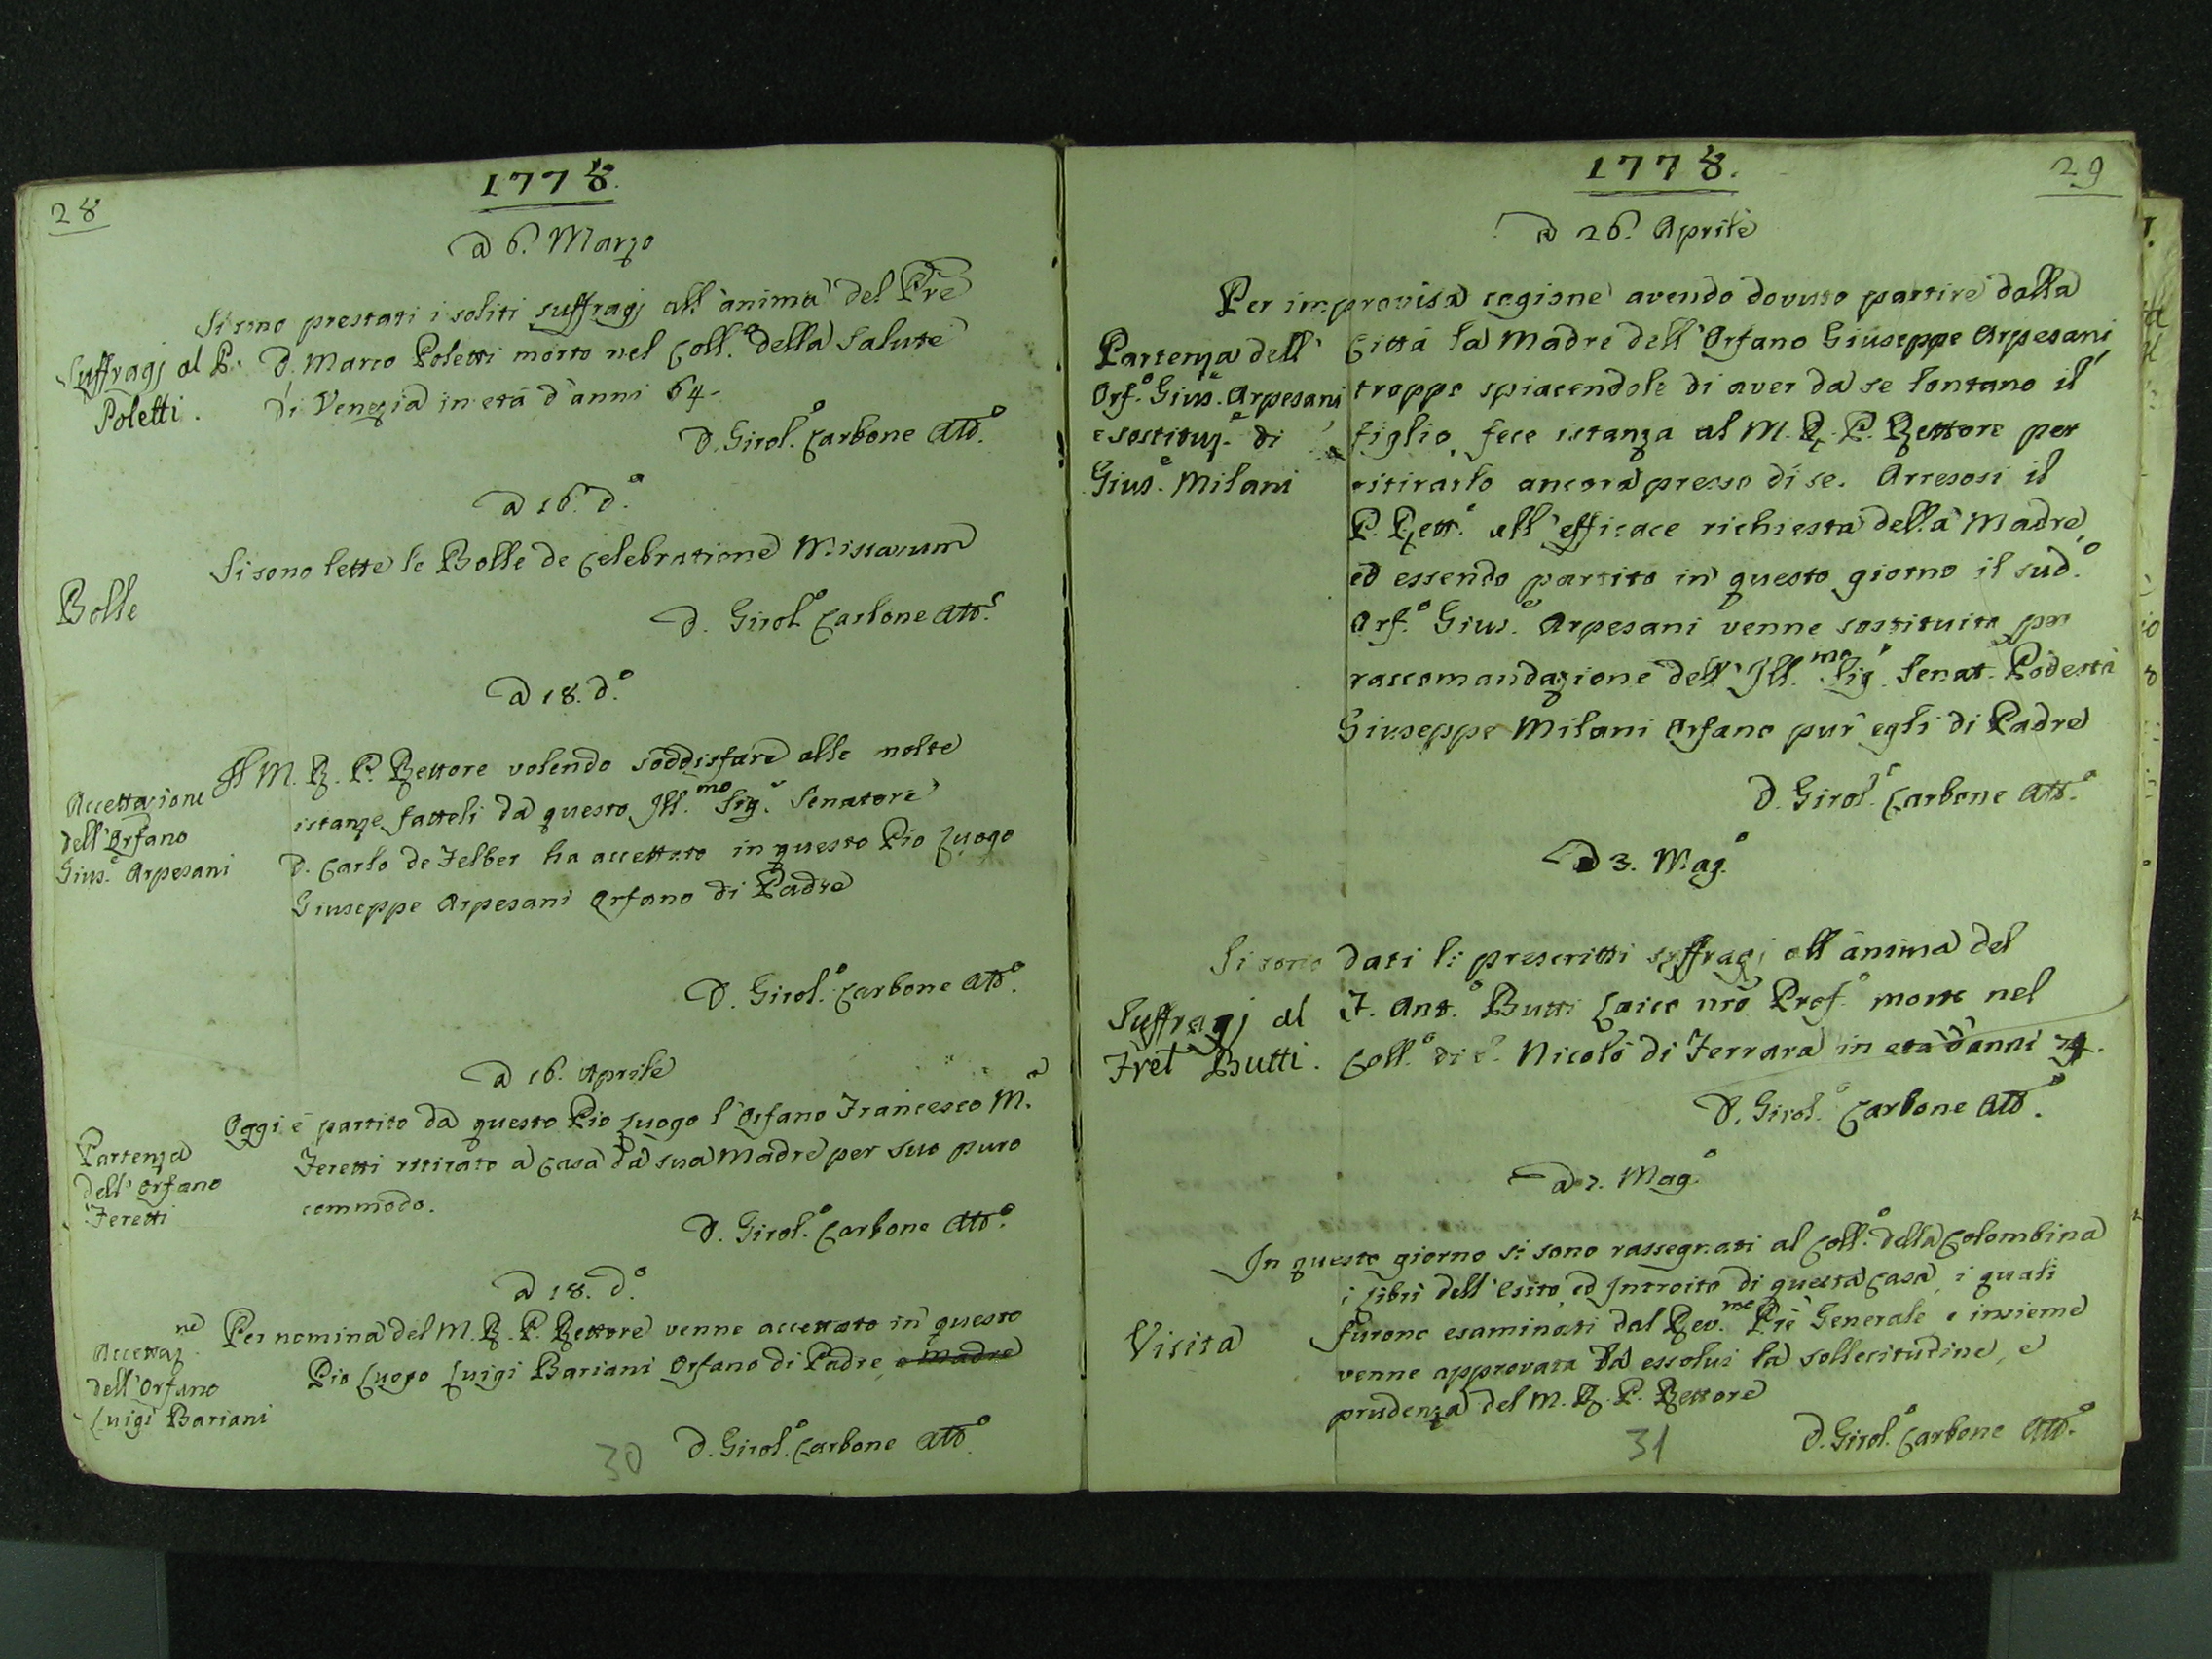 28
1778.
A 6. Marzo
Si sono prestati i soliti suffragj all'anima del Pre
Suffragj al P.
Poletti.
D. Marco Poletti morto nel Coll.o della Salute
di Venezia in età d'anni 64.
D. Girol.o Carbone Att.o
A 16. d.o
Bolle
Si sono lette le Bolle de Celebratione Missarum
D. Girol.o Carbone Att.o
A 18. d.o
Accettazione
dell'Orfano
Gius.e Arpesani
Il M. R. P. Rettore volendo soddisfare alle molte
istanze fatteli da questo Ill.mo Sig.r Senatore
D. Carlo de Felber ha accettato in questo Pio Luogo
Giuseppe Arpesani Orfano di Padre
D. Girol.o Carbone Att.o
A 16. Aprile
Partenza
dell'Orfano
Feretti
Oggi è partito da questo Pio Luogo l'Orfano Francesco M.a
Feretti ritirato a Casa da sua Madre per suo puro
commodo.
D. Girol.o Carbone Att.o
A 18. d.o
Accettaz.ne
dell'Orfano
Luigi Bariani
Per nomina del M. R. P. Rettore venne accettato in questo
Pio Luogo Luigi Bariani Orfano di Padre, e Madre
D. Girol.o Carbone Att.o
30
29
1778.
A 26. Aprile
Per improvisa cagione avendo dovuto partire dalla
Partenza dell'
Orf.o Gius.e Arpesani
e sostituz.e di
Gius.e Milani
Città la Madre dell'Orfano Giuseppe Arpesani
troppo spiacendole di aver da se lontano il
figlio, fece istanza al M. R. P. Rettore per
ritirarlo ancora presso di se. Arresosi il
P. Rett.e all'efficace richiesta della Madre,
ed essendo partito in questo giorno il sud.o
Orf.o Gius.e Arpesani venne sostituito per
raccomandazione dell'Ill.mo Sig.r Senat. Podestà
Giuseppe Milani Orfano pur egli di Padre
D. Girol.o Carbone Att.o
A 3. Mag.o
Si sono dati li prescritti suffragj all'anima del
Suffragj al
Frel Butti.
F. Ant.o Butti Laico nrõ Prof.o morto nel
Coll.o di S. Nicolò di Ferrara in età d'anni 74.
D. Girol.o Carbone Att.o
A 7. Mag.o
Visita
In questo giorno si sono rassegnati al Coll.o della Colombina
i Libri dell'Esito, ed Introito di questa Casa, i quali
furono esaminati dal Rev.mo Prè Generale e insieme
venne approvata da essolui la sollecitudine, e
prudenza del M. R. P. Rettore
D. Girol.o Carbone Att.o
31